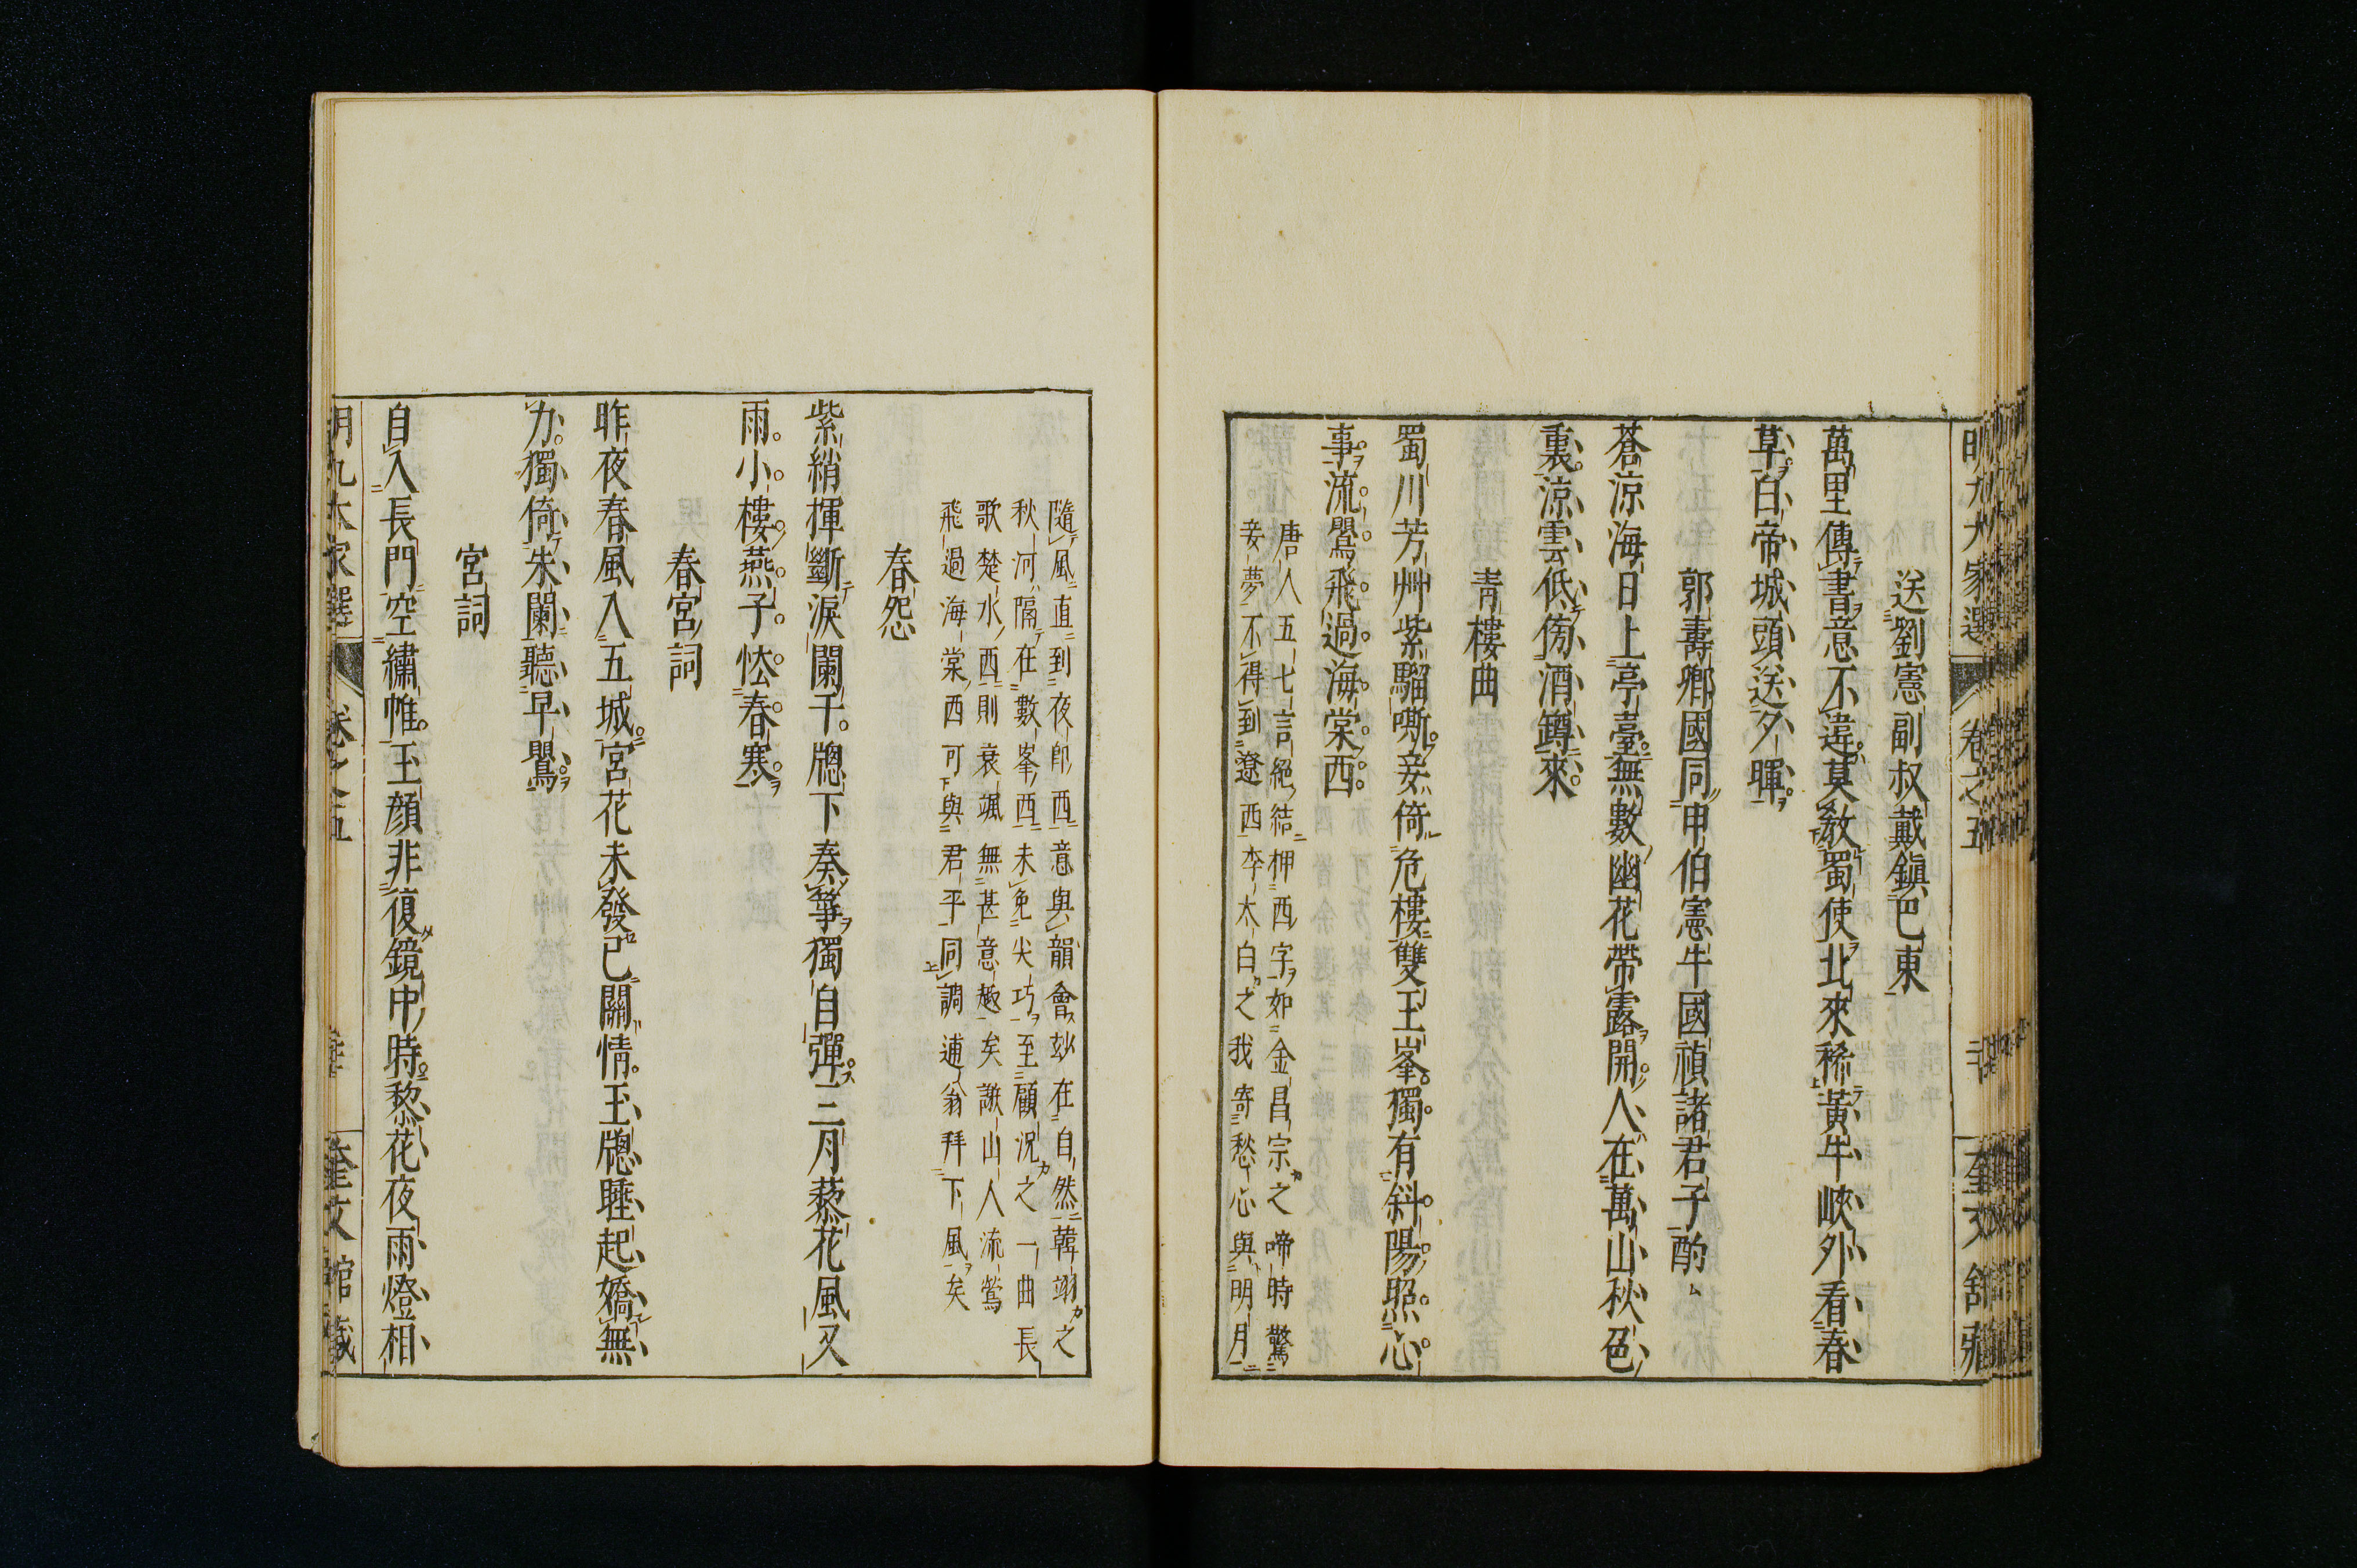 送劉憲副叔戴鎭巴東
萬里傳書意不違莫教蜀使北來稀黃牛峽外看春
草白帝城頭送夕暉
郭壽卿國同申伯憲牛國禎諸君子酌
蒼涼海日上亭臺無數幽花帶露開人在萬山秋色
裏涼雲低傍酒罇來
靑樓曲
蜀川芳艸紫騮嘶妾倚危樓雙玉峯獨有斜陽照心
事流鶯飛過海棠西
唐人五七言絕結押西字如金昌宗之啼時驚
妾夢不得到遼西李太白之我寄愁心與明月
隨風直到夜郎西意與韻會玅在自然韓翃之
秋河隔在數峯西未免尖巧至顧況之一曲長
歌楚水西則衰颯無甚意趣矣謝山人流鶯
飛過海棠西可與君平同調逋翁拜下風矣
春怨
紫綃揮斷淚闌干牕下奏箏獨自彈三月藜花風又
雨小樓燕子怯春寒
春宮詞
昨夜春風入五城宮花未發已關情玉牕睡起嬌無
力獨倚朱闌聽早鶯
宮詞
自入長門空繡帷玉顏非復鏡中時黎花夜雨燈相
明九大家選 卷之五 奎文館藏